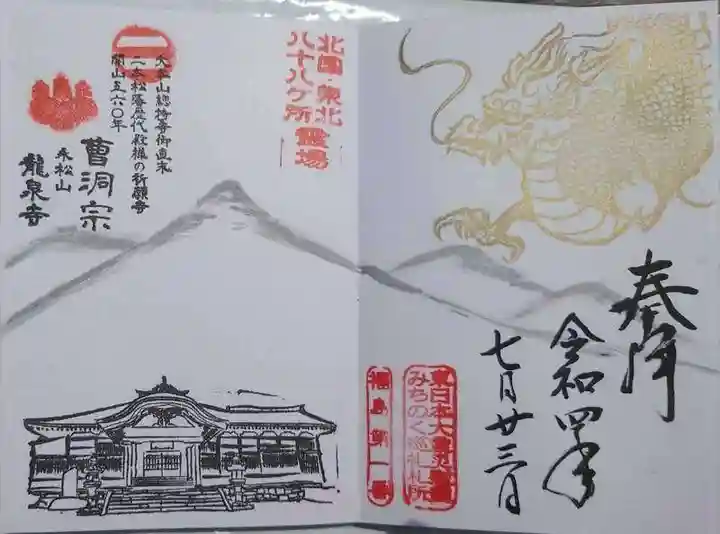 奉拝
令和四年
七月廿三日
東日本大
みちのく巡礼札所
福島第一
北国・東北
八十八ケ所霊場
二
大本山總持寺御直末
二本松藩歴代殿様の祈願寺
開山五六〇年
曹洞宗
永松山
龍泉寺